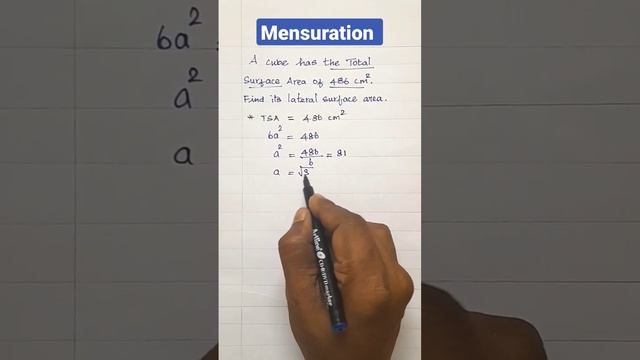 Mensuration
A cube has the Total
Surface Area of 486 cm².
Find its lateral surface area.
* TSA = 486 cm²
6a² = 486
a² = 486/6 = 81
a = √8
6a²
a²
a